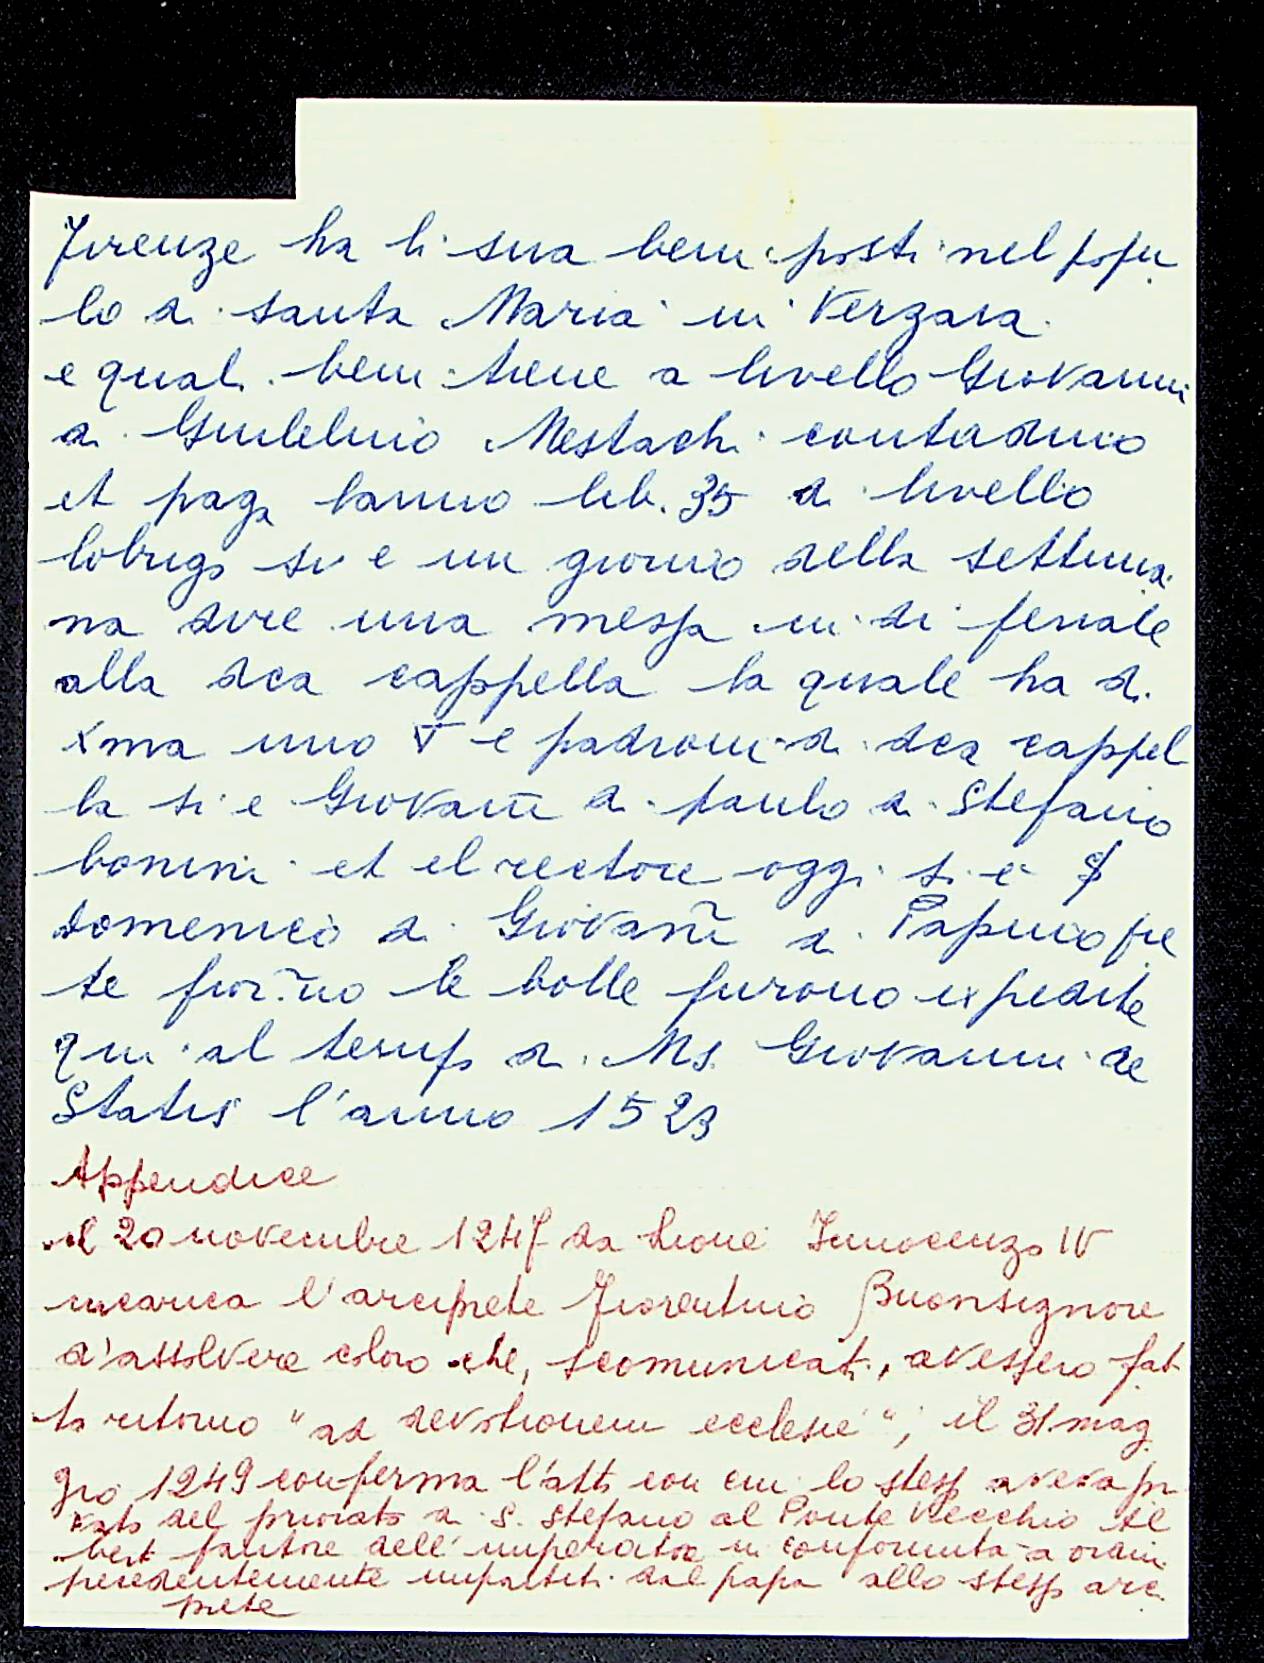 Firenze ha li sua beni posti nel popu
lo di santa Maria in Verzaia
e quali beni tiene a livello Giovanni
di Gulielmo Mestichi contadino
et paga lanno lib. 35 di livello
lobrigo si e un giorno della settima
na dire una messa in di feriale
alla dca cappella la quale ha di
xma uno ∇ e padroni di dca cappel
la si e Giovañi di paulo di Stefano
bonini et el rectore oggi si e $
domenico di Giovañi di Papino pre
te fior.no le bolle furono expedite
qui al tempo di Ms. Giovanni de
Statis l'anno 1523
Appendice
il 20 novembre 1247 da Lione Innocenzo IV
incarica l'arciprete Fiorentino Buonsignore
d'assolvere coloro che, scomunicati, avessero fat
to ritorno "ad devotionem ecclesie", il 31 mag
gio 1249 conferma l'atto con cui lo stesso aveva pri
vato del priorato di S. Stefano al Ponte Vecchio Al
berto fautore dell'imperatore in conformità a ordini
precedentemente impartiti dal papa allo stesso arci
prete